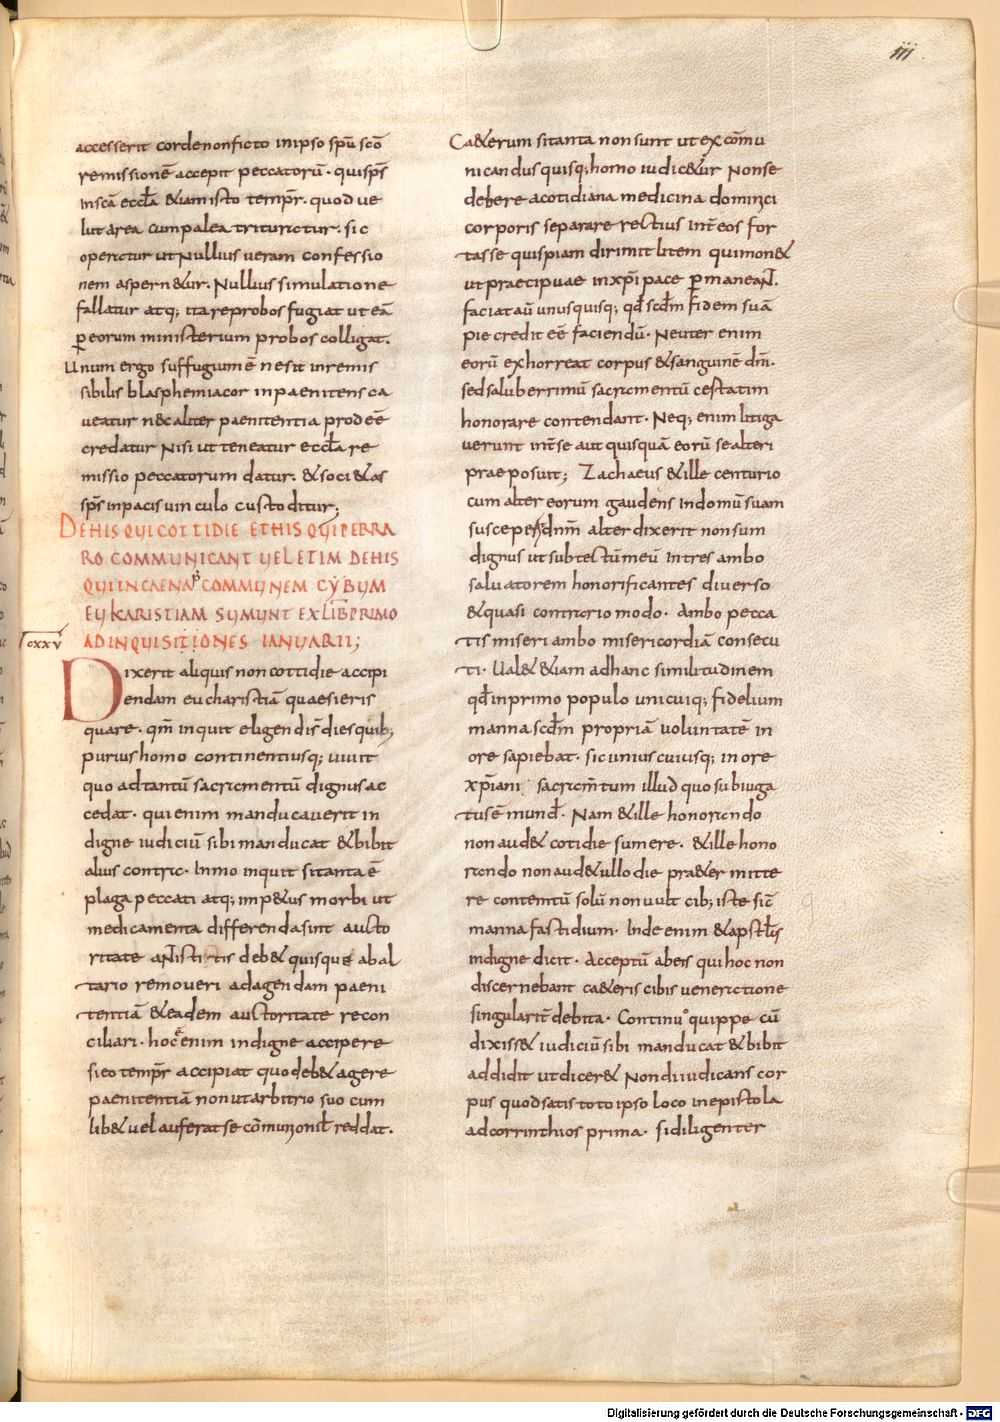 iii
accesserit corde non ficto in ipso sp̄u sc̄o
remissionē accepit peccatorū · qui sp̄s
in sc̄a eccl̄a &iam isto tempr̄ · quod ue
lut area cum palea trituratur · sic
operatur ut Nullius ueram confessio
nem aspern&ur · Nullius simulatione
fallatur atq; ita reprobos fugiat ut eā
p̲ eorum ministerium probos colligat.
Unum ergo suffugium ē ne sit inremis
sibilis blasphemia cor inpaenitens ca
ueatur nec aliter paenitentia prodeē
credatur Nisi ut teneatur eccl̄a re
missio peccatorum datur · & soci&as
sp̄s in pacis uinculo custoditur;
DE HIS QUI COTTIDIE ET HIS QUI PERRA
RO COMMUNICANT UEL ETIM DE HIS
QUI IN CAENA COMMUNEM CYBUM
EUKARISTIAM SUMUNT EX LIB PRIMO
AD INQUISITIONES IANUARII;
cxxv
Dixerit aliquis non cottidie accipi
endam eucharistiā quaesieris
quare · qm̄ inquit eligendi sn̄ dies quib;
purius homo continentiusq; uiuit
quo ad tantū sacramentū dignus ac
cedat · qui enim manducauerit in
digne iudiciū sibi manducat & bibit
alius contra · Inmo inquit si tanta ē
plaga peccati atq; imp&us morbi ut
medicamenta differenda sint aucto
ritate antistitis deb& quisque ab al
tario remoueri ad agendam paeni
tentiā & eadem auctoritate recon
ciliari · hoc ē enim indigne accipere
si eo tempr̄ accipiat quo deb& agere
paenitentiā non ut arbitrio suo cum
lib& uel auferat se cōmunonil̄ reddat.
Ca&erum si tanta non sunt ut excōmu
nicandus quisq; homo iudic&ur Non se
debere a cotidiana medicina dominici
corporis separare rectius int̄ eos for
tasse quispiam dirimit litem qui mon&
ut praecipuae in xp̄i pace p̲maneaNt̄.
faciat aū unusquisq; qd̄ scd̄m fidem suā
pie credit eē faciendū · Neuter enim
eorū exhorreat corpus & sanguinē dn̄i ·
sed saluberrimū sacramentū certatim
honorare contendant · Neq; enim litiga
uerunt int̄ se aut quisquā eorū se alteri
praeposuit; Zachaeus & ille centurio
cum alter eorum gaudens in domū suam
susceperit dn̄m alter dixerit non sum
dignus ut sub tectū meū intres ambo
saluatorem honorificantes diuerso
& quasi contrario modo · Ambo pecca
tis miseri ambo misericordiā consecu
ti · Ual& &iam ad hanc similitudinem
qd̄ in primo populo unicuiq; fidelium
manna scd̄m propriā voluntatē in
ore sapiebat · sic unius cuiusq; in ore
xp̄iani sacram̄tum illud quo subiuga
tus ē mund̄ · Nam & ille honorando
non aud& cotidie sumere · & ille hono
rando non aud& ullo die pra&er mitte
re contemtū solū non uult cib; iste sic̄
manna fastidium · Inde enim & apstl̄s
indigne dicit · Acceptū ab eis qui hoc non
discernebant ca&eris cibis ueneratione
singularit̄ debita · Continuo quippe cū
dixiss& iudiciū sibi manducat & bibit
addidit ut dicer& Non diiudicans cor
pus quod satis toto ipso loco in epistola
ad corrinthios prima · si diligenter
Digitalisierung gefördert durch die Deutsche Forschungsgemeinschaft - DFG